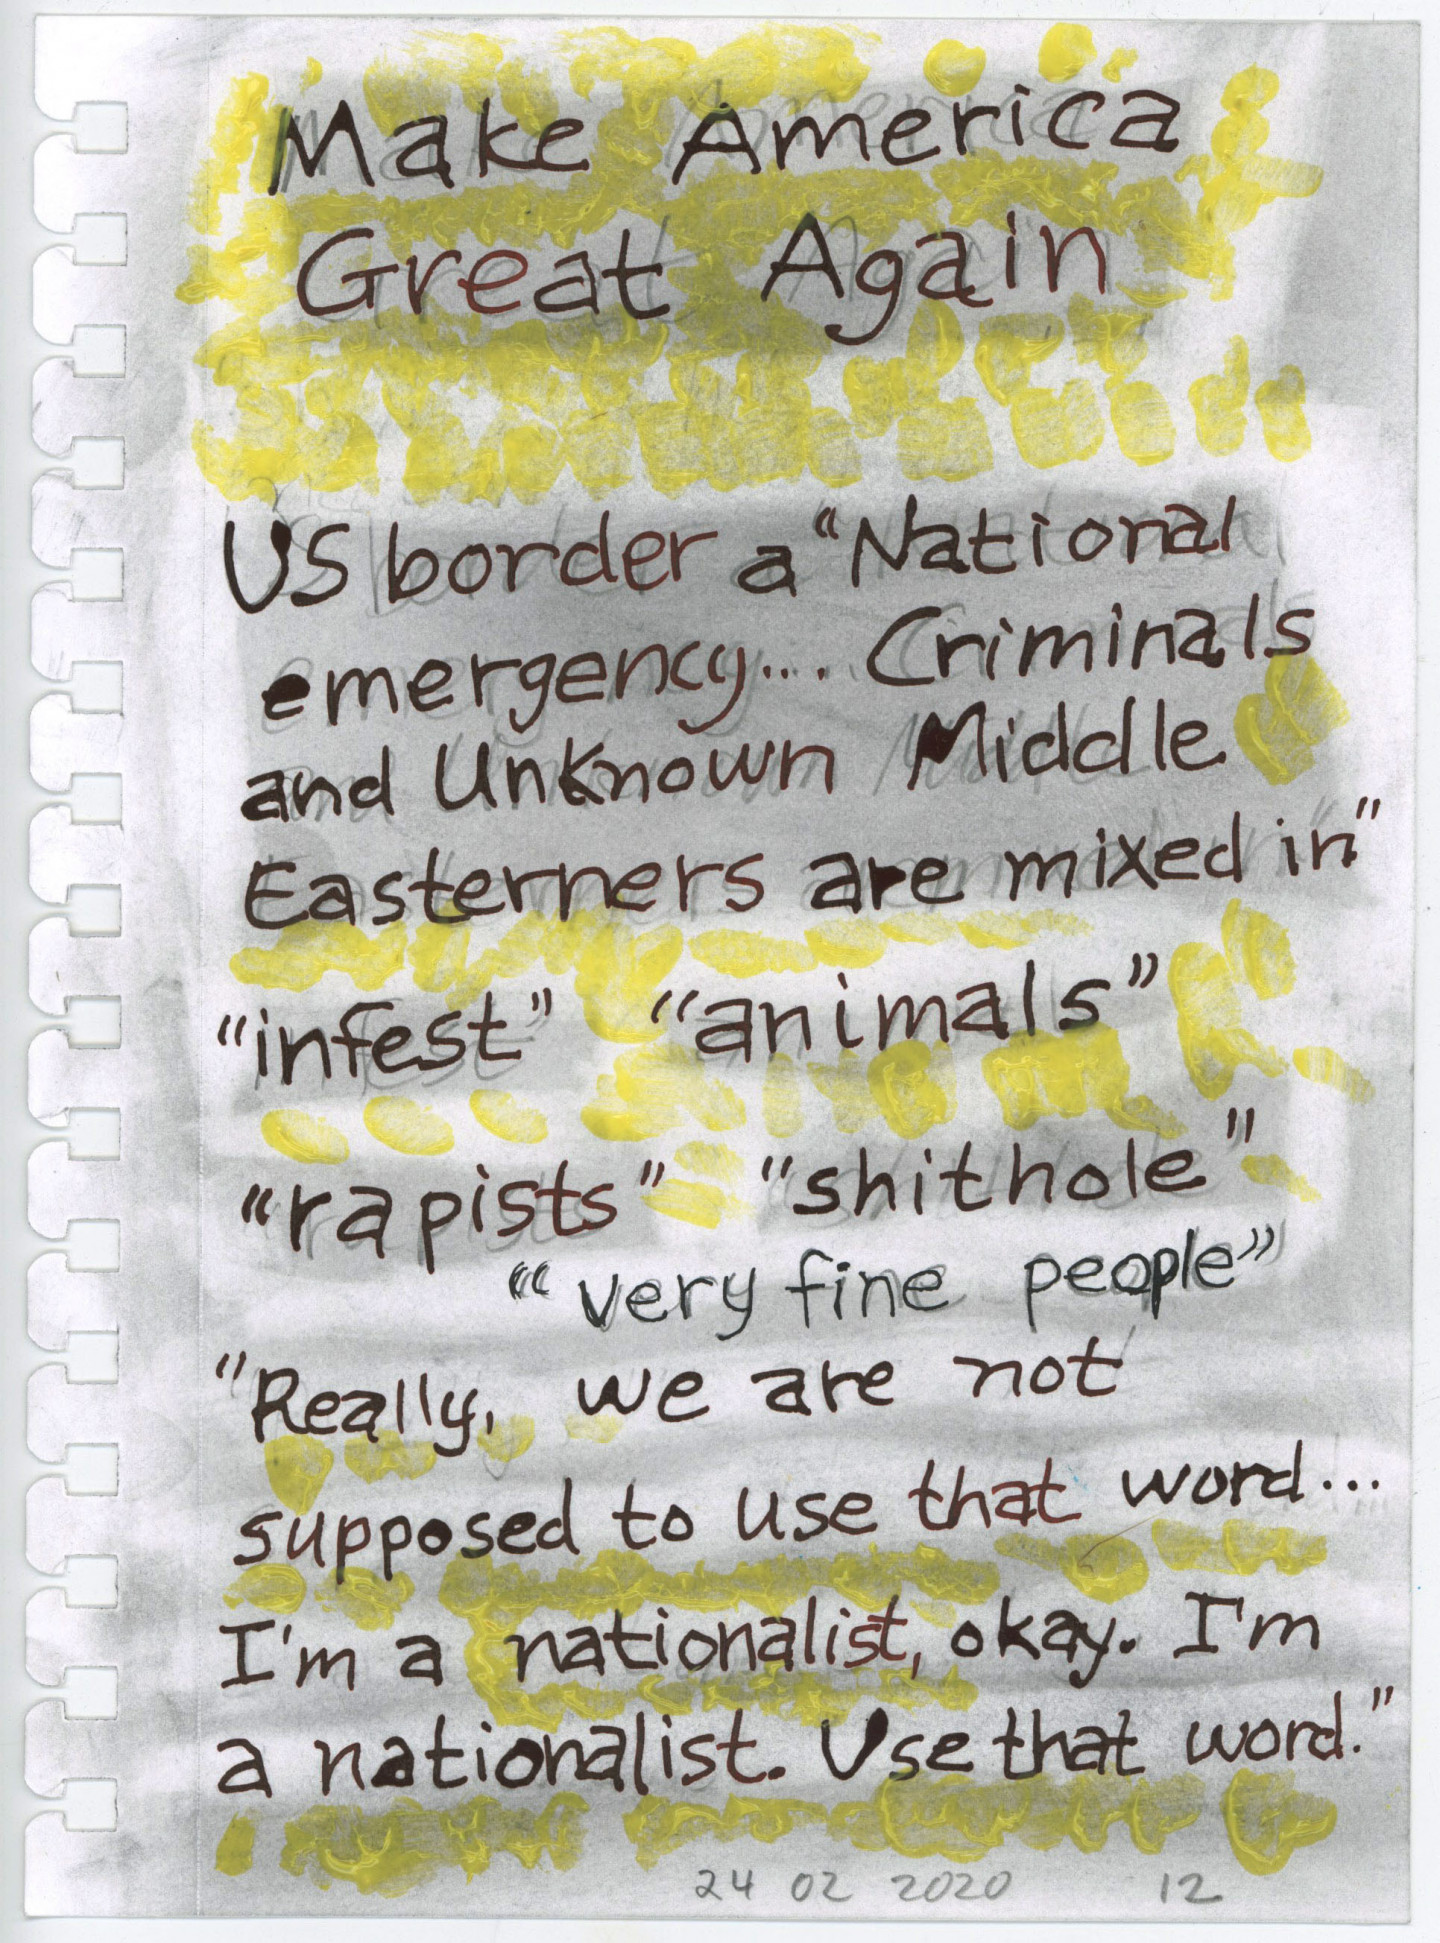 Make America
Great Again
US border a "National
emergency.... Criminals
and Unknown Middle
Easterners are mixed in"
"infest" "animals"
"rapists" "shithole"
"very fine people"
"Really, we are not
supposed to use that word...
I'm a nationalist, okay. I'm
a nationalist. Use that word."
24 02 2020 12